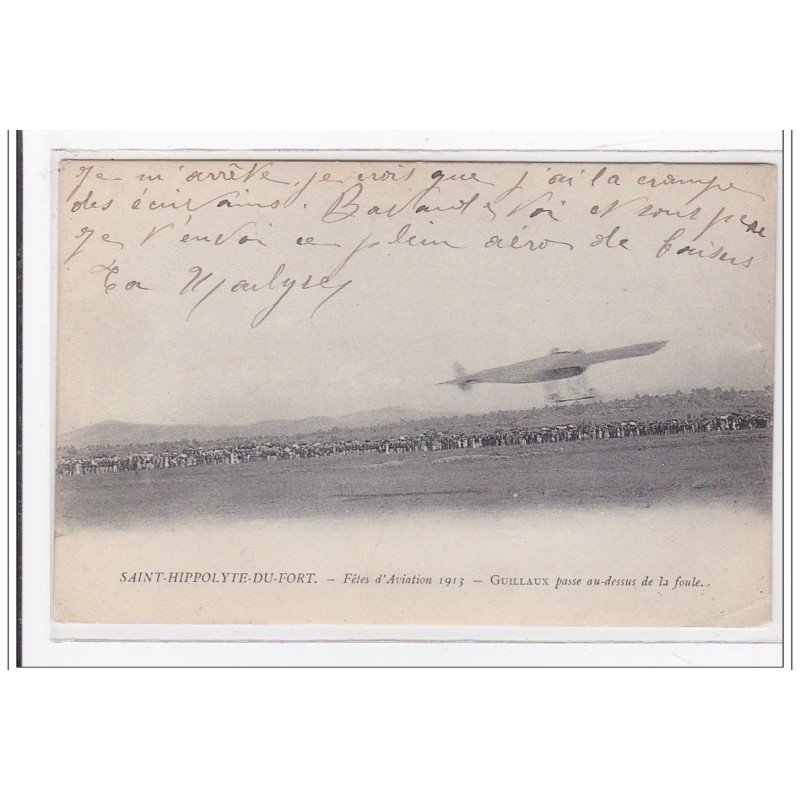 Je m'arrête, je crois que j'ai la crampe
des écrivains. voi et
Je t'envoi ce plein aéro de baisers
Ta
SAINT-HIPPOLYTE-DU-FORT. - Fêtes d'Aviation 1913 - GUILLAUX passe au-dessus de la foule...